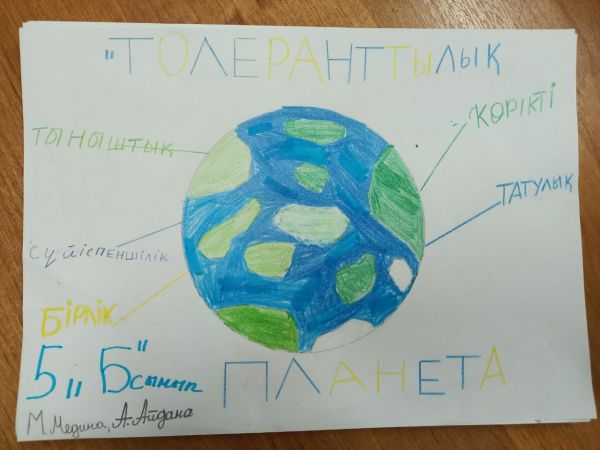 "ТОЛЕРАНТТЫЛЫҚ
ТЫНЫШТЫҚ
КӨРІКТІ
ТАТУЛЫҚ
СҮЙІСПЕНШІЛІК
БІРЛІК
5 „Б" сынып
ПЛАНЕТА
М.Медина, А.Айдана